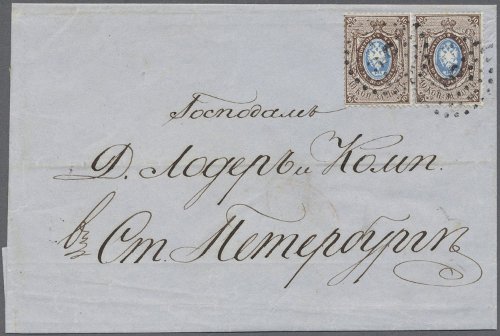 Господамъ
Д. Лодеръ и Комп.
въ Ст. Петербургѣ